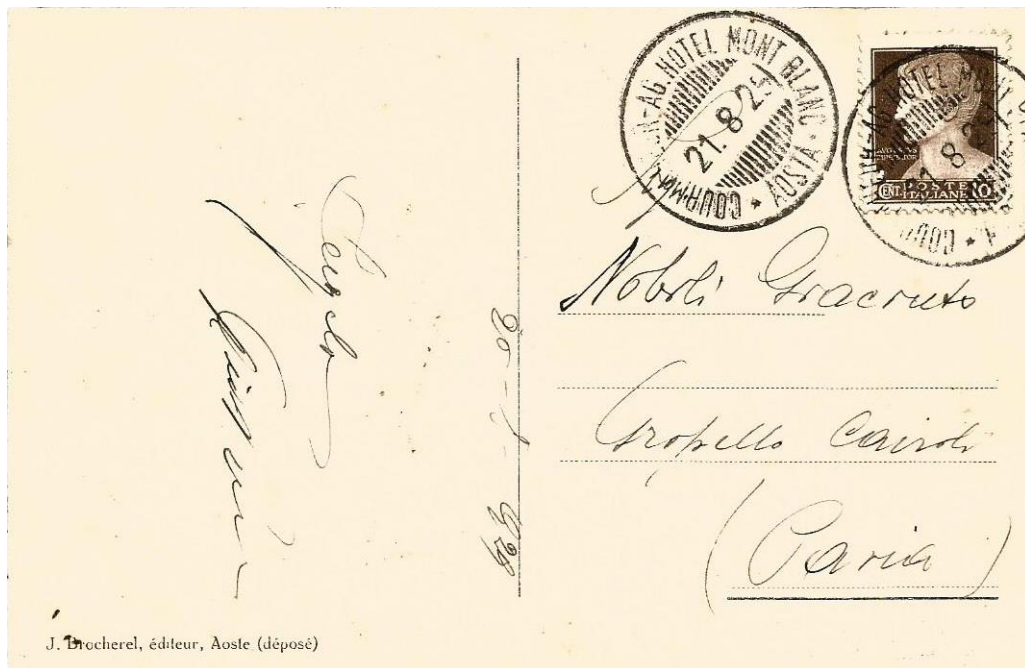 COURMAYEUR-AG. HOTEL MONT BLANC · AOSTA
21.8.2
HOTEL MONT
21.8.2
POSTE
ITALIANE
CENT 10
Nobili Giacinto
Gropello Cairoli
(Pavia)
Angelo
J. Brocherel, éditeur, Aoste (déposé)